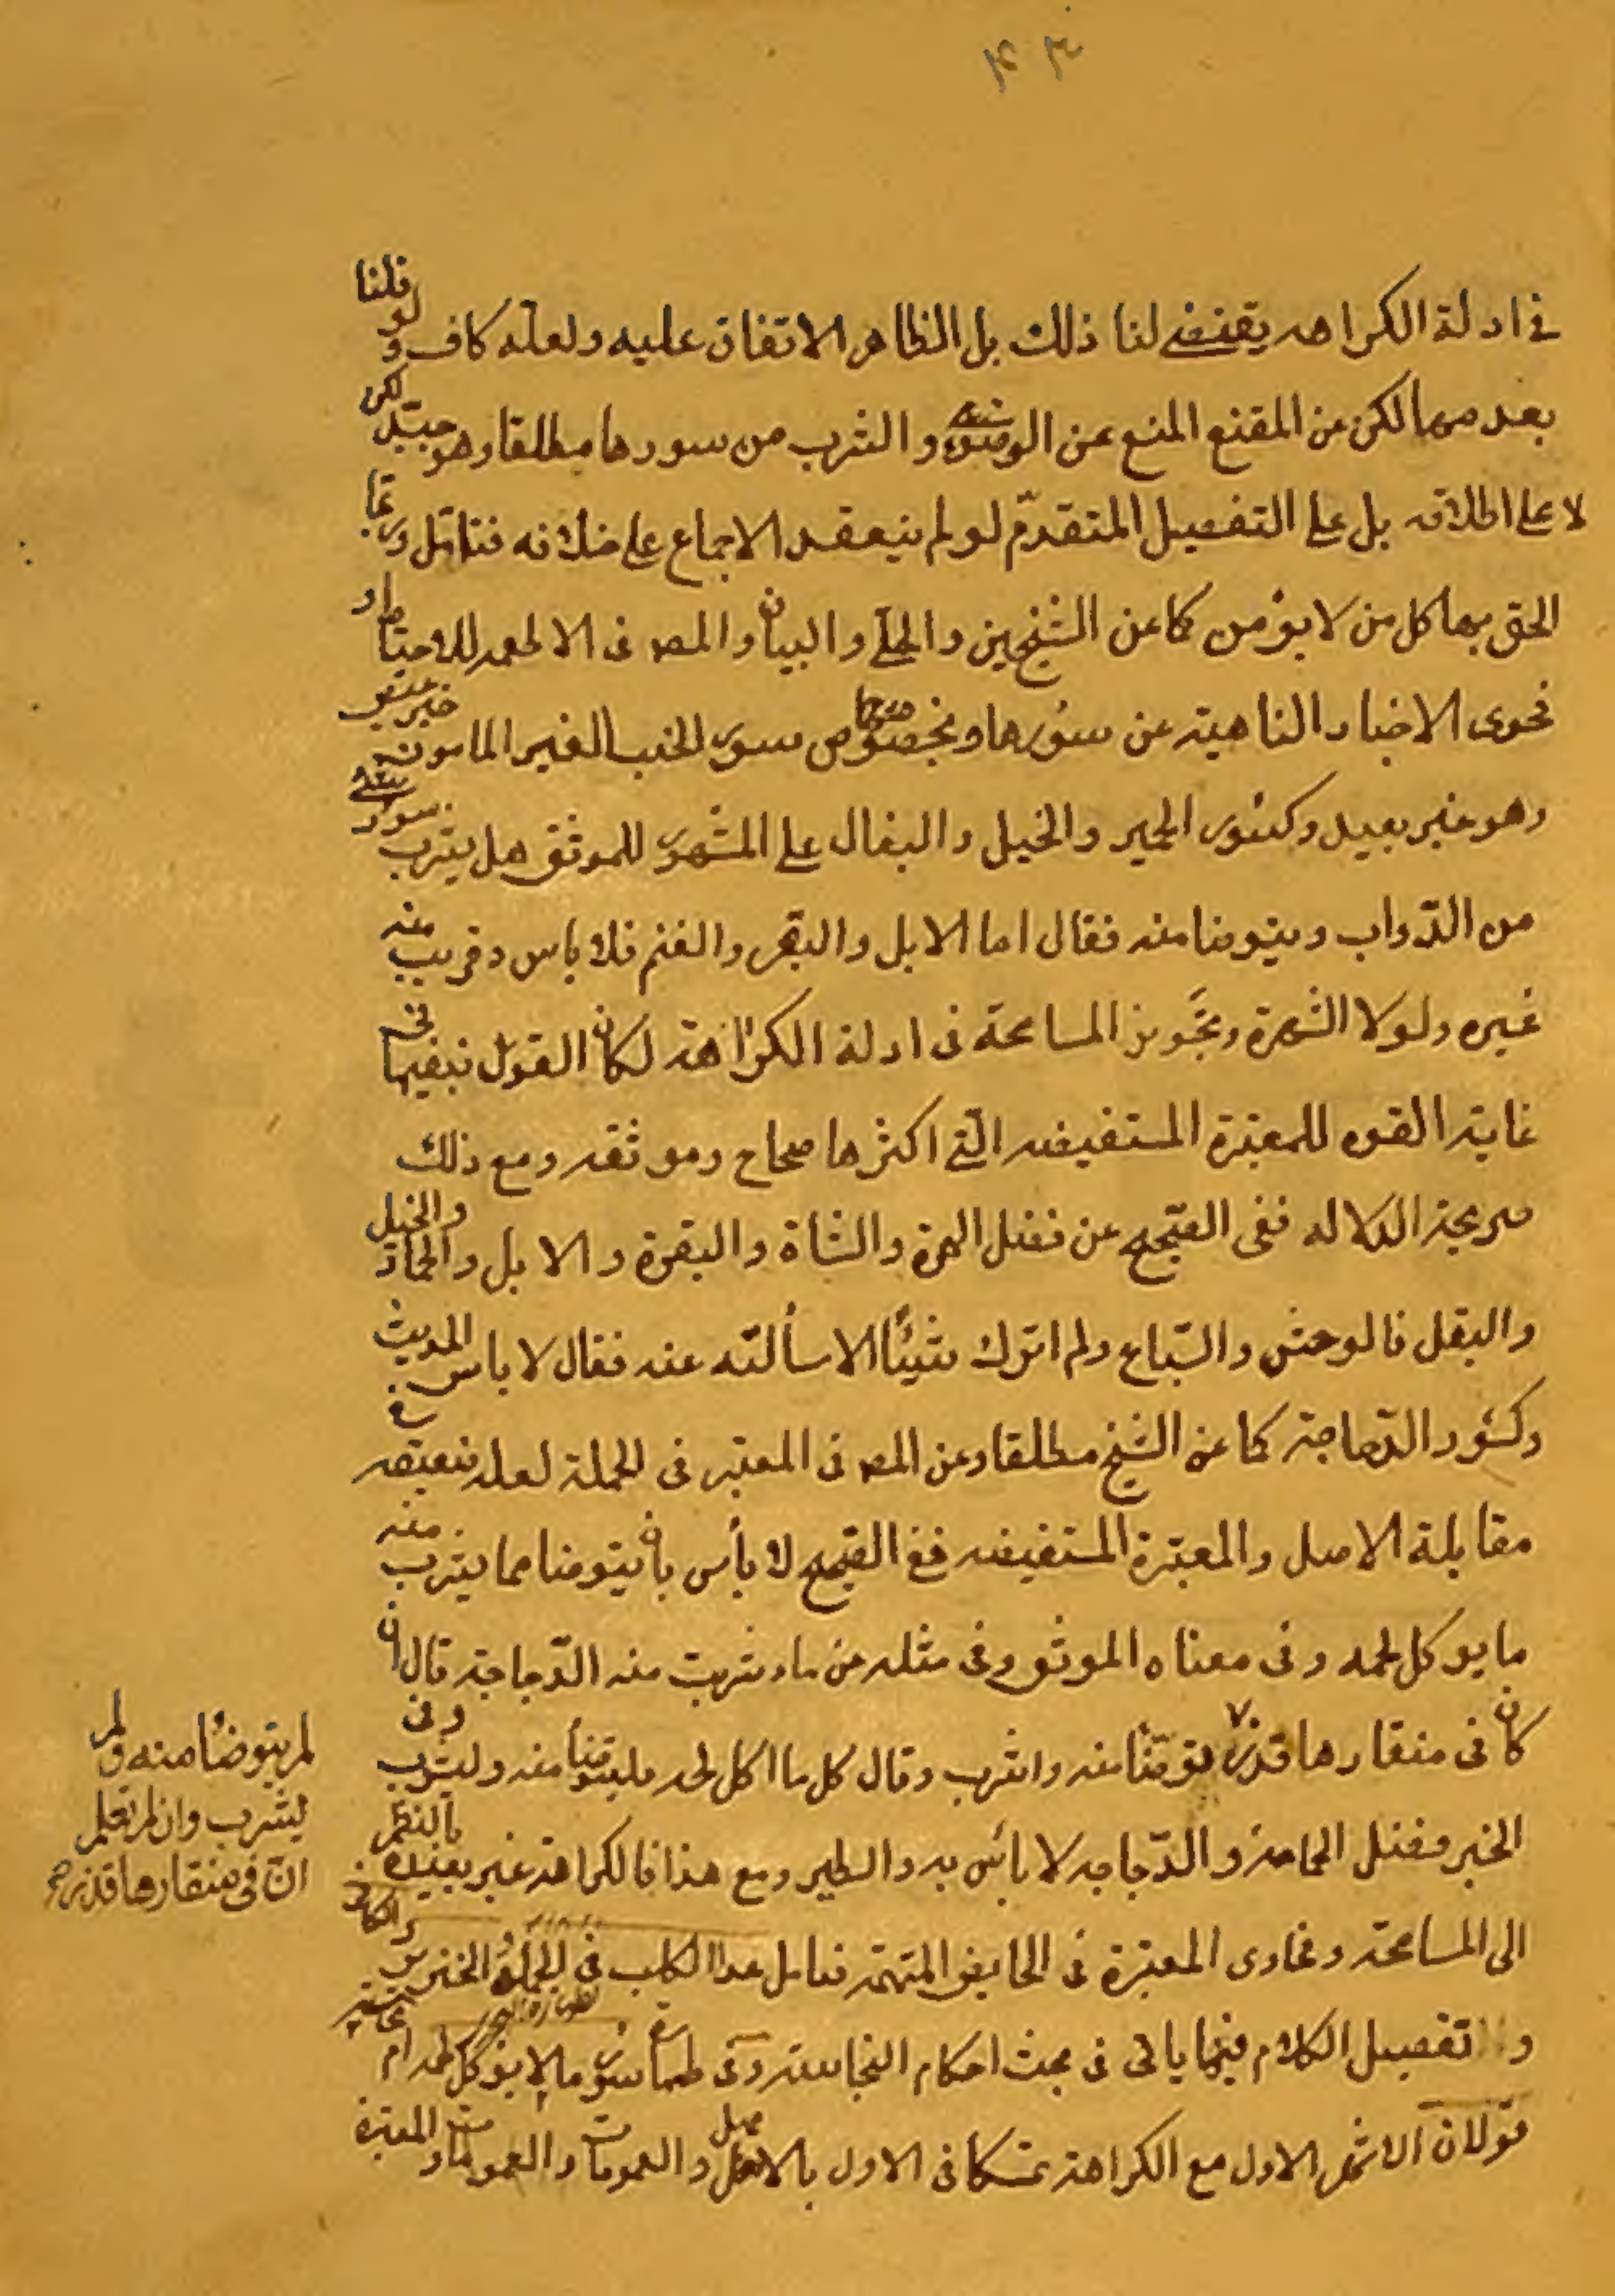 في ادلة الكراهه يقتضي لنا ذلك بل الظاهر الاتفاق عليه ولعله كاف ولو قلنا
بعدمها لكن عن المقنع المنع عن الوضوء والشرب من سورها مطلقا وهو جيد لكن
لا على اطلاقه بل على التفصيل المتقدّم لو لم ينعقد الاجماع على خلافه فتامل وربما
الحق بها كل من لا يؤمن كما عن الشيخين والحلي والبيان والمص في الاطعمه للاحتياط و
فحوى الاخبار الناهية عن سؤرها وبخصوص سور الجنب الغير المامونه
وهو غير بعيد وكسؤر الحمير والخيل والبغال على المشهور للموثق هل يشرب سور شئ
من الدّواب ويتوضا منه فقال اما الابل والبقر والغنم فلا باس وقريب منه
غيره ولولا الشهرة وتجويز المسامحة في ادلة الكراهة لكان القول بنفيها في
غاية القوه للمعتبرة المستفيضه الّتي اكثرها صحاح وموثقه ومع ذلك
صريحة الدلاله ففي الصّحيح عن فضل الهرة والشاة والبقرة والابل والحمار والخيل
والبغل فالوحش والسّباع ولم اترك شيئًا الا سألته عنه فقال لا باس الحديث
وكسؤر الدّجاجة كما عن الشيخ مطلقا وعن المص في المعتبر في الجملة لعله ضعيفه في
مقابلة الاصل والمعتبرة المستفيضه ففي الصّحيح لا بأس بان يتوضا مما يشرب منه
ما يوكل لحمه وفي معناه الموثق وفي مثله عن ماء شربت منه الدّجاجة قال ان
كان في منقارها قذر توضّأ منه واشرب وقال كل ما اكل لحمه فليتوضأ منه وليشرب وفي
لم يتوضأ منه ولم
يشرب وان لم تعلم
انّ في منقارها قذر صح
الخبر وفضل الحمامة والدّجاجه لا بأس به والطير ومع هذا فالكراهة غير بعيده بالنظر
الى المسامحة وفحاوى المعتبرة في الحايض المتهمة فتامل عدا الكلب في الجملة والخنزير والكافر
وتفصيل الكلام فيها ياتى في بحث احكام النجاسة وفي طهارة سؤر ما لا يؤكل لحمه ام
قولان الاشهر الاول مع الكراهة تمسكا في الاول بالاصل والعمومات والمعتبرة